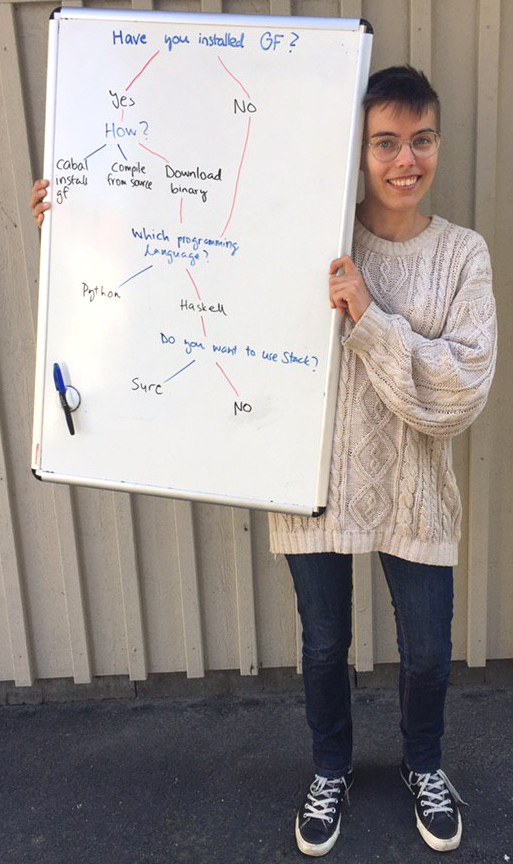 Have you installed GF?
Yes
No
How?
cabal
install
gf
Compile
from source
Download
binary
Which programming
language?
Python
Haskell
Do you want to use Stack?
Sure
No